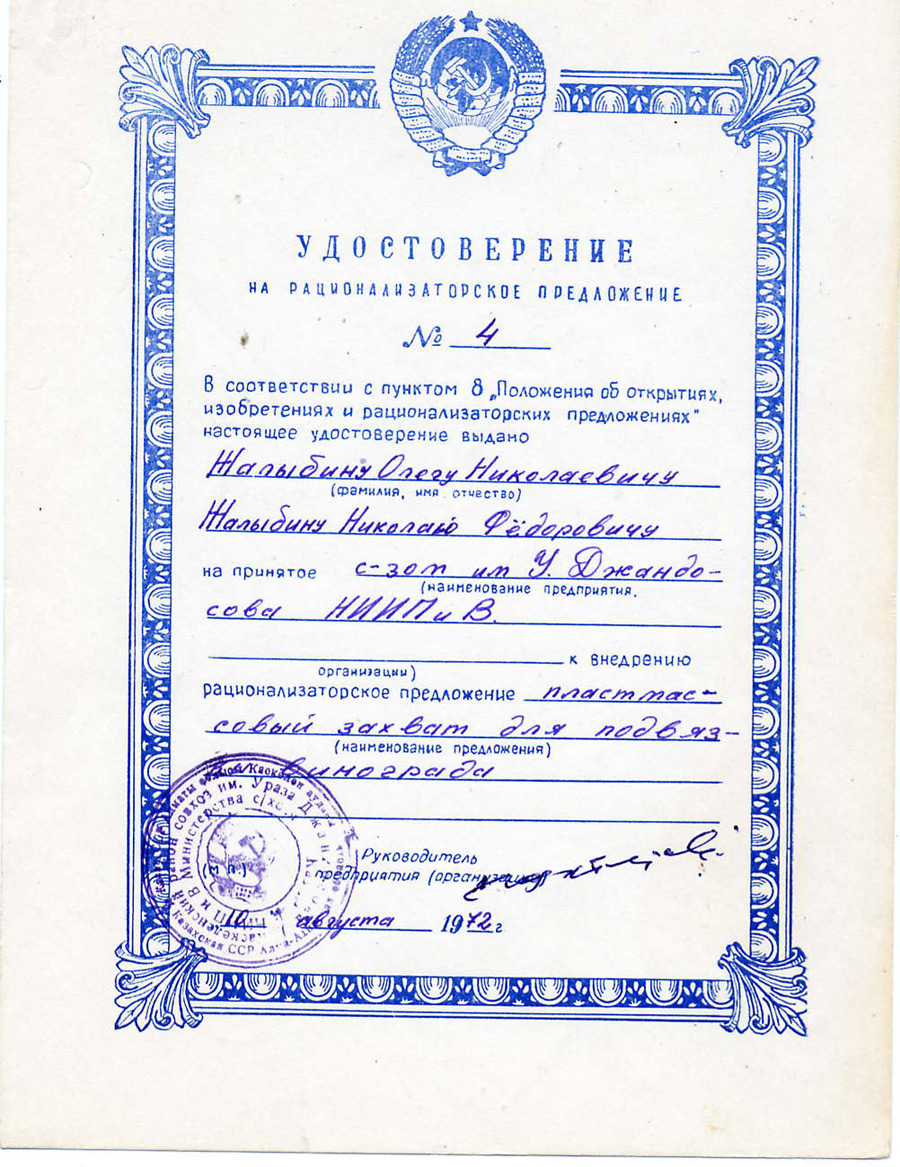 УДОСТОВЕРЕНИЕ
НА РАЦИОНАЛИЗАТОРСКОЕ ПРЕДЛОЖЕНИЕ
№ 4
В соответствии с пунктом 8 „Положения об открытиях,
изобретениях и рационализаторских предложениях"
настоящее удостоверение выдано
Жалыбину Олегу Николаевичу
(фамилия, имя отчество)
Жалыбину Николаю Фёдоровичу
на принятое с-зом им У. Джандо-
(наименование предприятия,
сова НИИПиВ.
к внедрению
организации)
рационализаторское предложение пластмас-
совый захват для подвяз-
(наименование предложения)
ки винограда
Руководитель
(м.п.) предприятия (организации)
10 августа 1972 г
совхоз им. Ураза
Министерства с/хоз
Казахская ССР